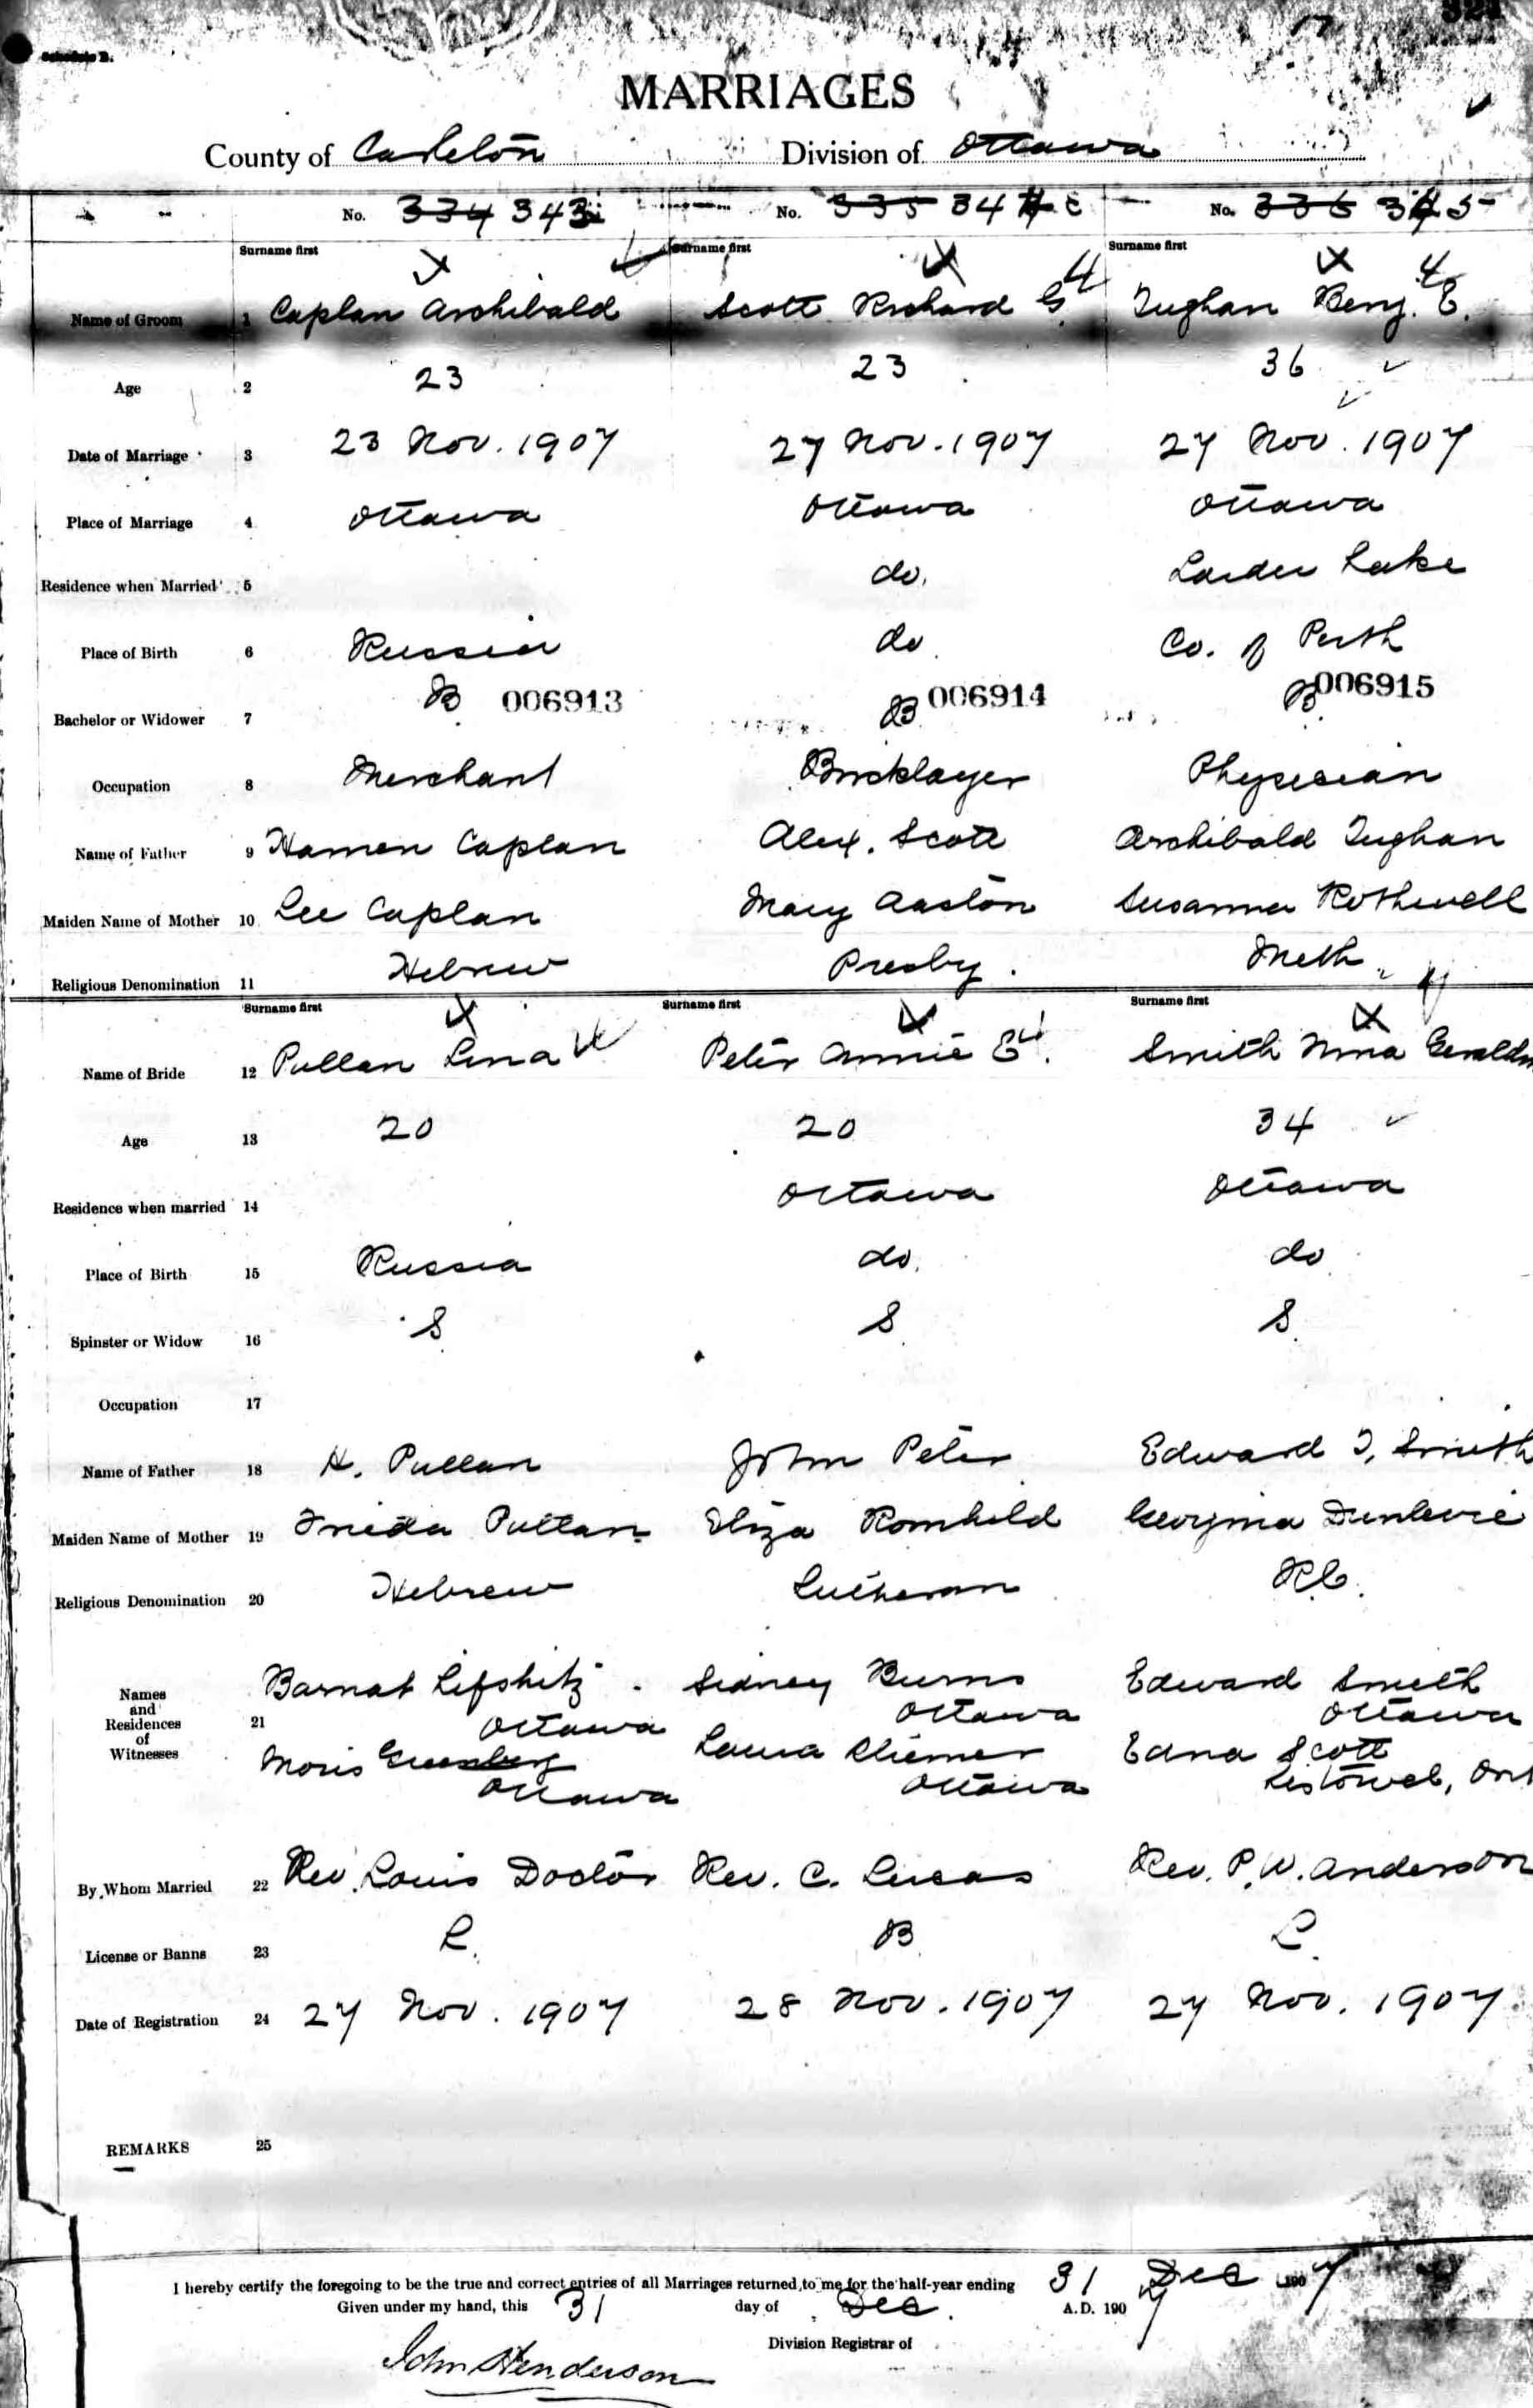 Schedule B.
MARRIAGES
County of Carleton Division of Ottawa
No. 334 343 No. 335 344 No. 336 345
Surname first Surname first Surname first
Name of Groom 1 Caplan Archibald Scott Richard G. Tughan Benj. E.
Age 2 23 23 36
Date of Marriage 3 23 Nov. 1907 27 Nov. 1907 27 Nov. 1907
Place of Marriage 4 Ottawa Ottawa Ottawa
Residence when Married 5 do. Larder Lake
Place of Birth 6 Russia do Co. of Perth
Bachelor or Widower 7 B 006913 B 006914 B 006915
Occupation 8 Merchant Bricklayer Physician
Name of Father 9 Hamen Caplan Alex. Scott Archibald Tughan
Maiden Name of Mother 10 Lee Caplan Mary Aaston Susanna Rothwell
Religious Denomination 11 Hebrew Presby. Meth
Surname first Surname first Surname first
Name of Bride 12 Pullan Lena Peter Annie E. Smith Nina
Age 13 20 20 34
Residence when married 14 Ottawa Ottawa
Place of Birth 15 Russia do. do
Spinster or Widow 16 S S S
Occupation 17
Name of Father 18 H. Pullan John Peter Edward J. Smith
Maiden Name of Mother 19 Frieda Pullan Eliza Romhild Georgina Dunlevie
Religious Denomination 20 Hebrew Lutheran R.C.
Names and Residences of Witnesses 21
Barnat Lifshitz Sidney Burns Edward Smith
Ottawa Ottawa Ottawa
Moris Greenberg Laura Edna Scott
Ottawa Ottawa Listowel, Ont
By Whom Married 22 Rev. Louis Doctor Rev. C. Lucas Rev. P. W. Anderson
License or Banns 23 L. B L.
Date of Registration 24 27 Nov. 1907 28 Nov. 1907 27 Nov. 1907
REMARKS 25
I hereby certify the foregoing to be the true and correct entries of all Marriages returned to me for the half-year ending 31 Dec 1907
Given under my hand, this 31 day of Dec. A.D. 1907
Division Registrar of
John Henderson